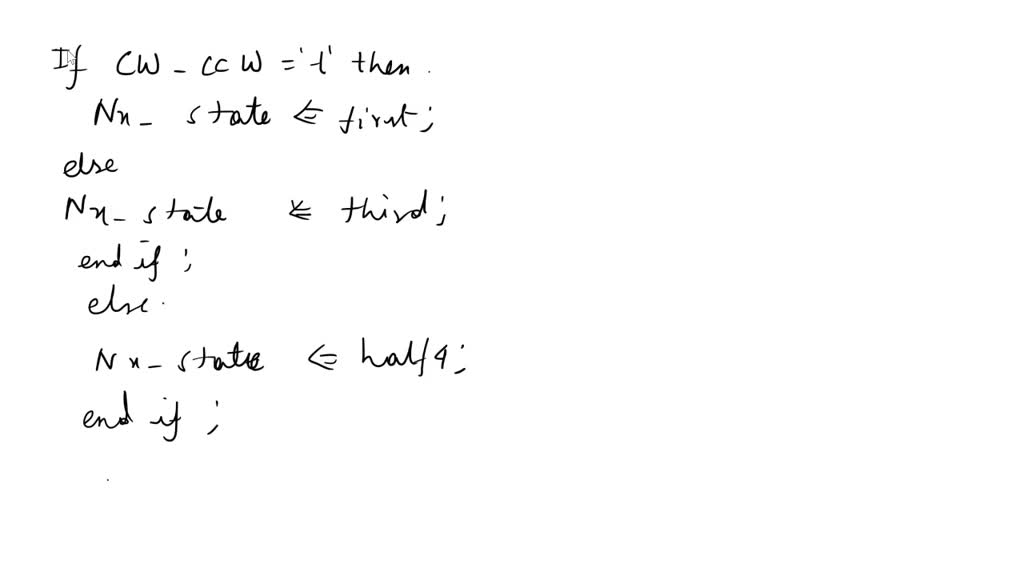 If CW - CCW = '1' then.
Nx_ state <= first;
else
Nx_ state <= third;
end if ;
else.
Nx_ state <= half4;
end if ;